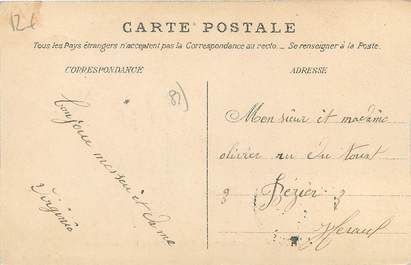 12f
CARTE POSTALE
Tous les Pays étrangers n'acceptent pas la Correspondance au recto. _ Se renseigner à la Poste.
CORRESPONDANCE
ADRESSE
Bonjour messeu et dame
Virginie
Monsieur et madame
olivier ru du tout
Bézier
Heraul